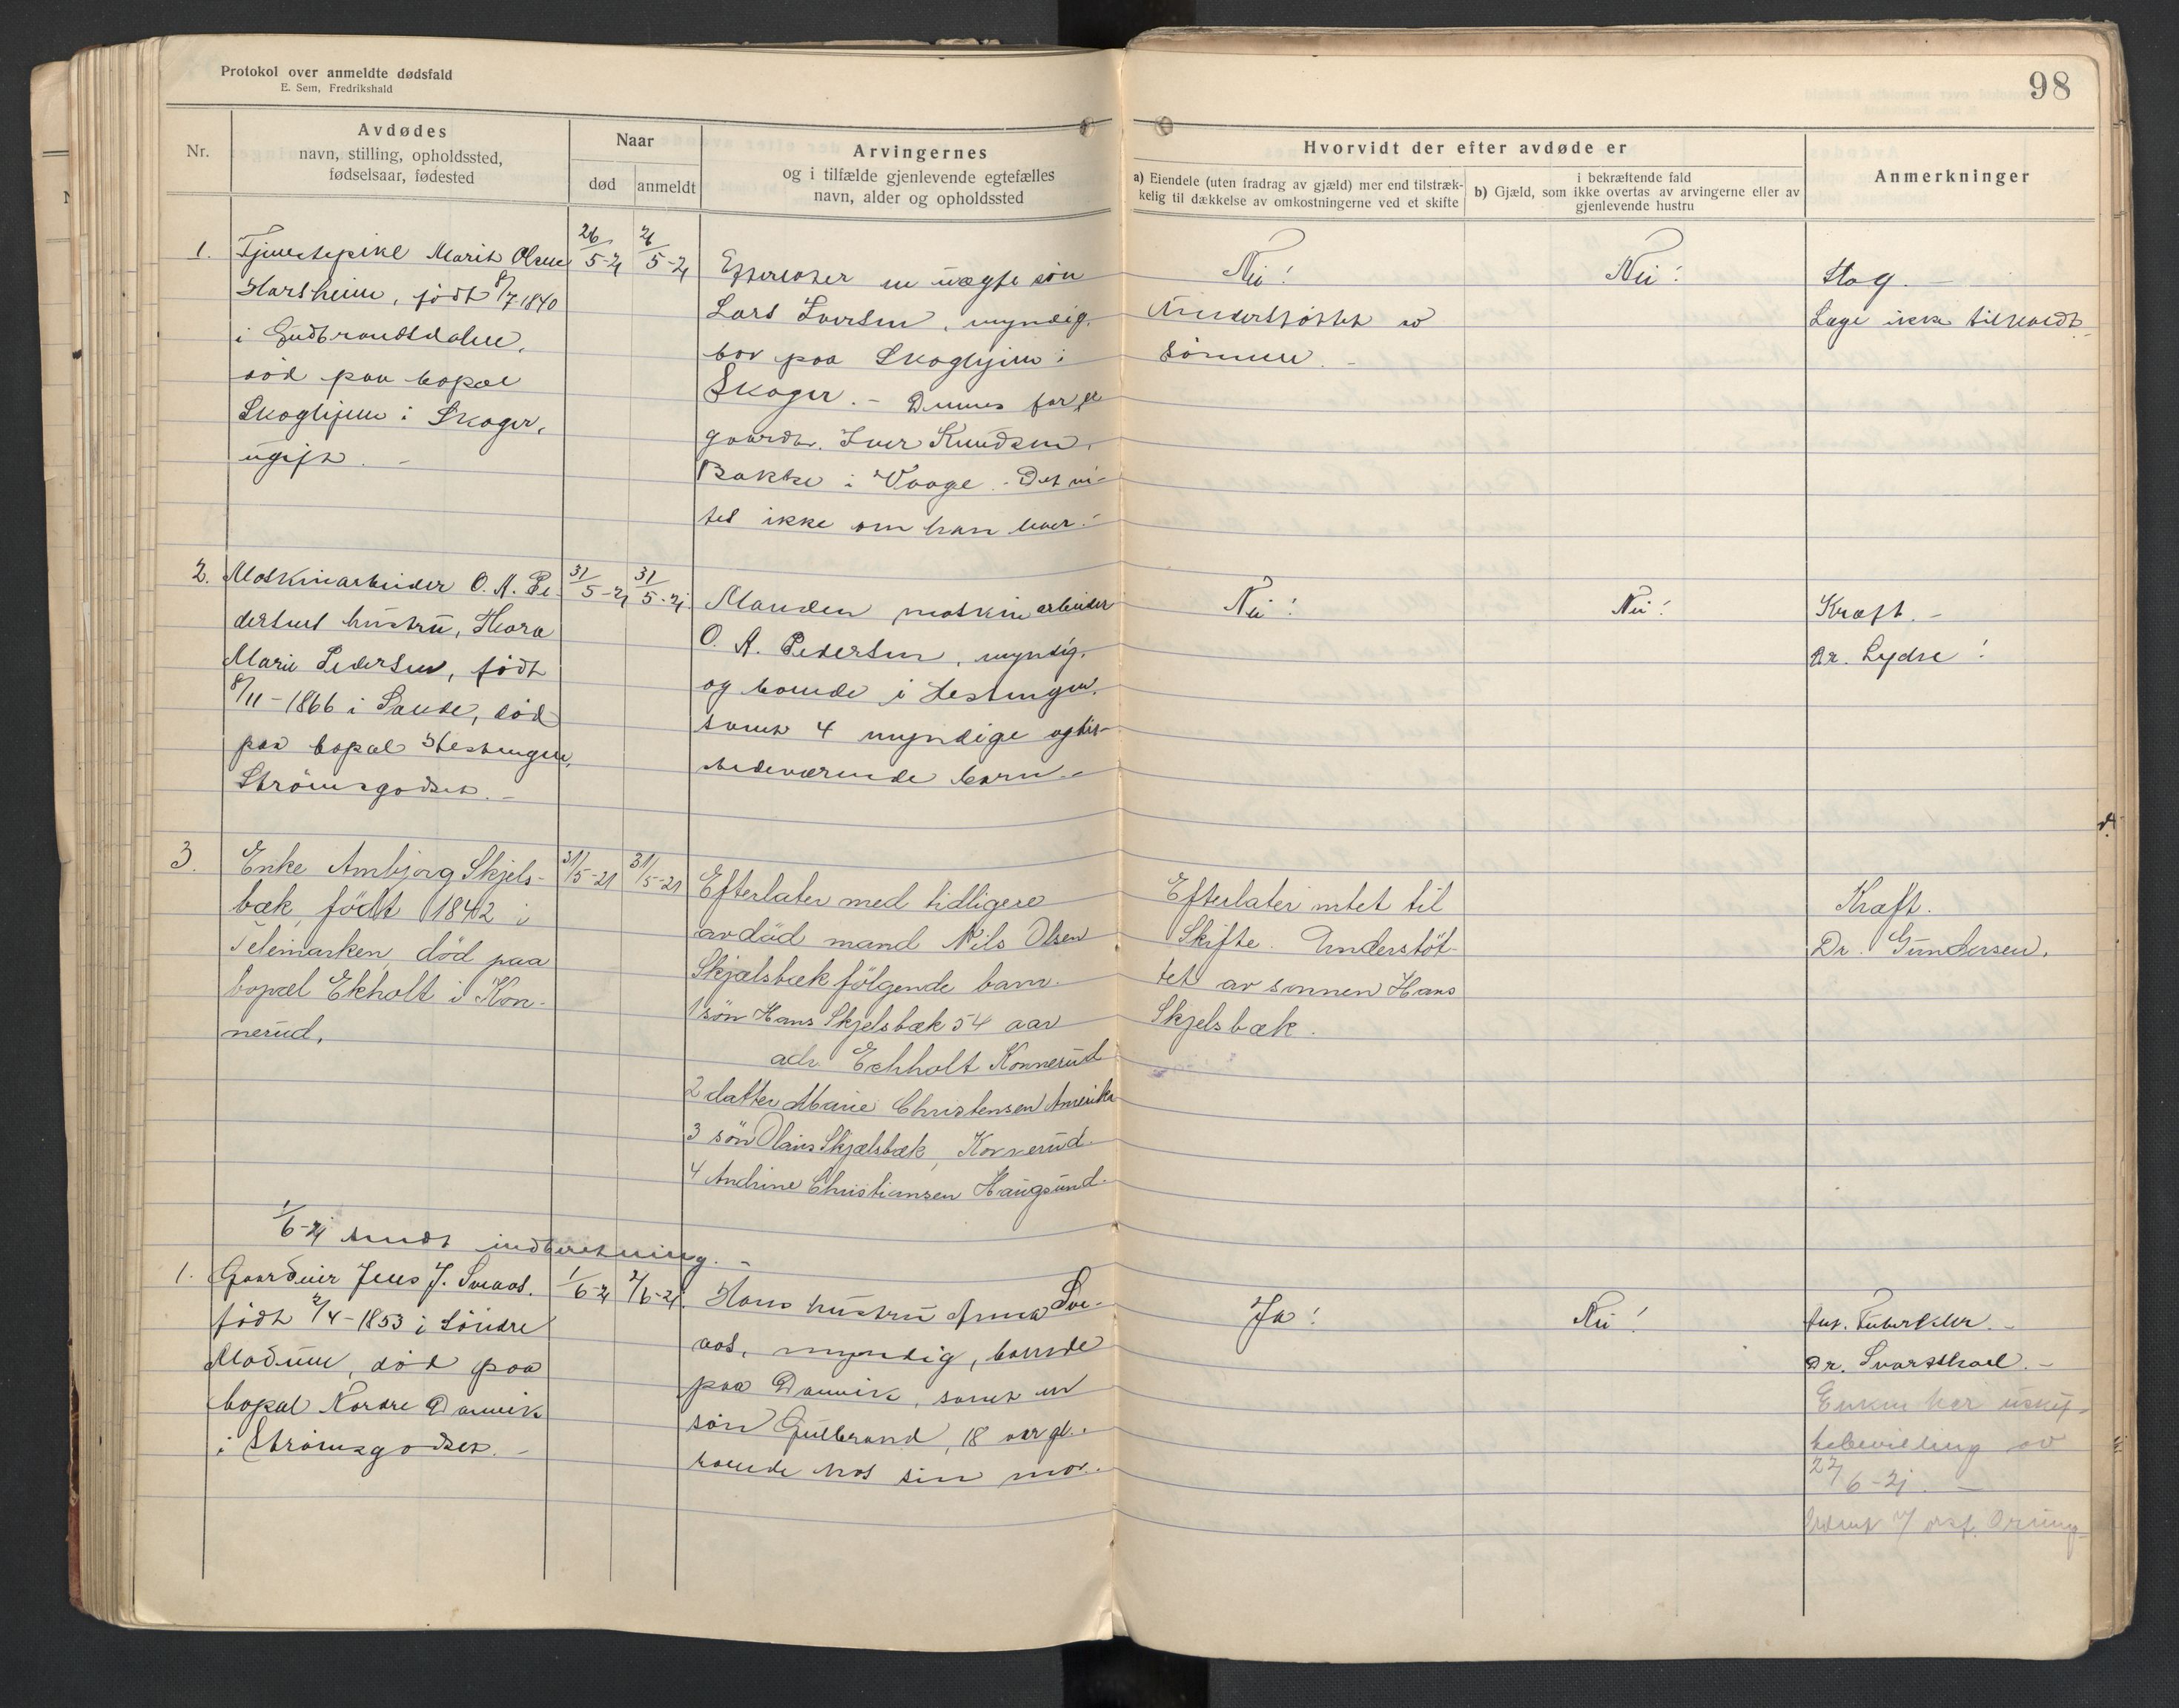 Protokol over anmeldte dødsfald
E. Sem, Fredrikshald
98
Nr.
Avdødes
navn, stilling, opholdssted,
fødselsaar, fødested
Naar
død
anmeldt
Arvingernes
og i tilfælde gjenlevende egtefælles
navn, alder og opholdssted
Hvorvidt der efter avdøde er
a) Eiendele (uten fradrag av gjæld) mer end tilstræk-
kelig til dækkelse av omkostningerne ved et skifte
i bekræftende fald
b) Gjæld, som ikke overtas av arvingerne eller av
gjenlevende hustru
Anmerkninger
1.
Tjenestepike Marit Olsen
Harsheim, födt 8/7 1840
i Gudbrandsdalen,
död paa bopæl
Skoghjem i Skoger,
ugift. -
26/5-21
26/5-21
Efterlater en uægte sön
Lars Iversen, myndig,
bor paa Skoghjem i
Skoger. - Dennes far er
gaardbr. Iver Knudsen,
Bakke i Vaage. - Det vi-
tes ikke om han lever. -
Nei!
Understöttet av
sönnen. -
Nei!
Slag. -
Læge ikke tilkaldt. -
2.
Maskinarbeider O. A. Pe-
dersens hustru, Thora
Marie Pedersen, födt
8/11-1866 i Sande, död
paa bopæl Stestengen,
Strömsgodset. -
31/5-21
31/5-21
Manden maskinarbeider
O. A. Pedersen, myndig,
og boende i Stestengen,
samt 4 myndige og tils-
tedeværende barn. -
Nei!
Nei!
Kræft. -
Dr. Lydse!
3.
Enke Ambjorg Skjels-
bæk, födt 1842 i
Telemarken, död paa
bopæl Ekholt i Kon-
nerud.
31/5-21
31/5-21
Efterlater med tidligere
avdöd mand Nils Olsen
Skjælsbæk fölgende barn.
1 sön Hans Skjelsbæk 54 aar
adr. Echholt Konnerud
2 datter Marie Christensen Amerika
3 sön Olaus Skjælsbæk, Konnerud.
4 Andrine Christiansen Haugsund.
Efterlater intet til
Skifte. Understöt-
tet av sönnen Hans
Skjelsbæk.
Kræft.
Dr. Gundersen.
1/6-21 sendt indberetning. -
1.
Gaardeier Jens J. Sveaas.
födt 2/4-1853 i Söndre
Modum, död paa
bopæl Nordre Danvik
i Strömsgodset. -
1/6-21
2/6-21.
Hans hustru Anna Sve-
aas, myndig, boende
paa Danvik, samt en
sön Gulbrand, 18 aar gl.
boende hos sin mor. -
Ja!
Nei!
Tuberkler. -
Dr. Svartskael. -
Enken har uskif-
tebevilling av
22/6-21. -